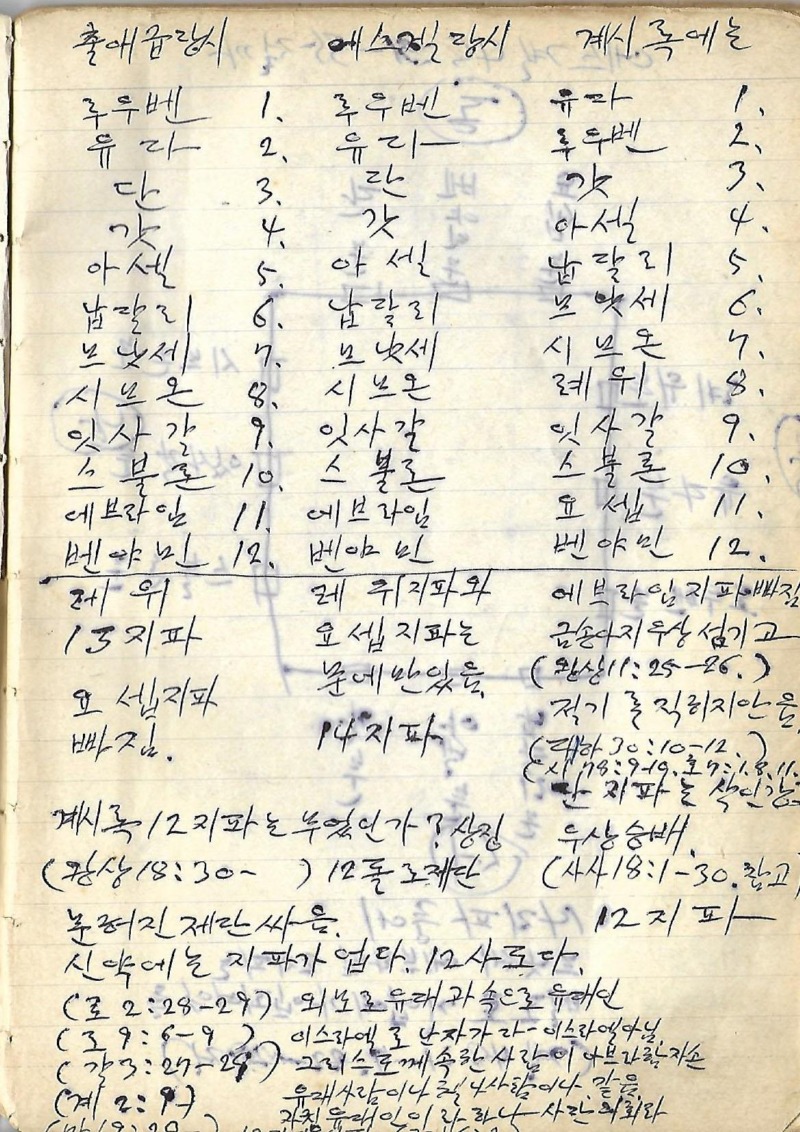 출애급당시 에스겔당시 계시록에는
루우벤 1. 루우벤 유다 1.
유다 2. 유다 루우벤 2.
단 3. 단 갓 3.
갓 4. 갓 아셀 4.
아셀 5. 아셀 납달리 5.
납달리 6. 납달리 므낫세 6.
므낫세 7. 므낫세 시므온 7.
시므온 8. 시므온 레위 8.
잇사갈 9. 잇사갈 잇사갈 9.
스불론 10. 스불론 스불론 10.
에브라임 11. 에브라임 요셉 11.
벤야민 12. 벤야민 벤야민 12.
레위 레위지파와 에브라임지파빠짐
13지파 요셉지파는 금송아지우상섬기고
문에만있음. (왕상11:25-26.)
요셉지파 적기를직히지안음
빠짐. 14지파. (대하30:10-12.)
(시78:9-10.
단지파는
계시록12지파는무었인가?상징 우상숭배.
(왕상18:30- ) 12돌로제단 (사사18:1-30.참고)
문허진제단싸음. 12지파
신약에는지파가업다. 12사로다.
(로2:28-29) 외모로유대과속으로유대인
(로9:6-9) 이스라엘로난자가다-이스라엘아님.
(갈3:27-29) 그리스도께속한사람이아브라함자손
(계2:9) 유대사람이나헬나사람이나.같음.
자칭유대인이라하나-사단의회라